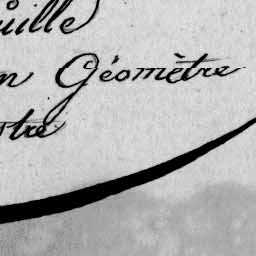 uille
n Géomètre
stre